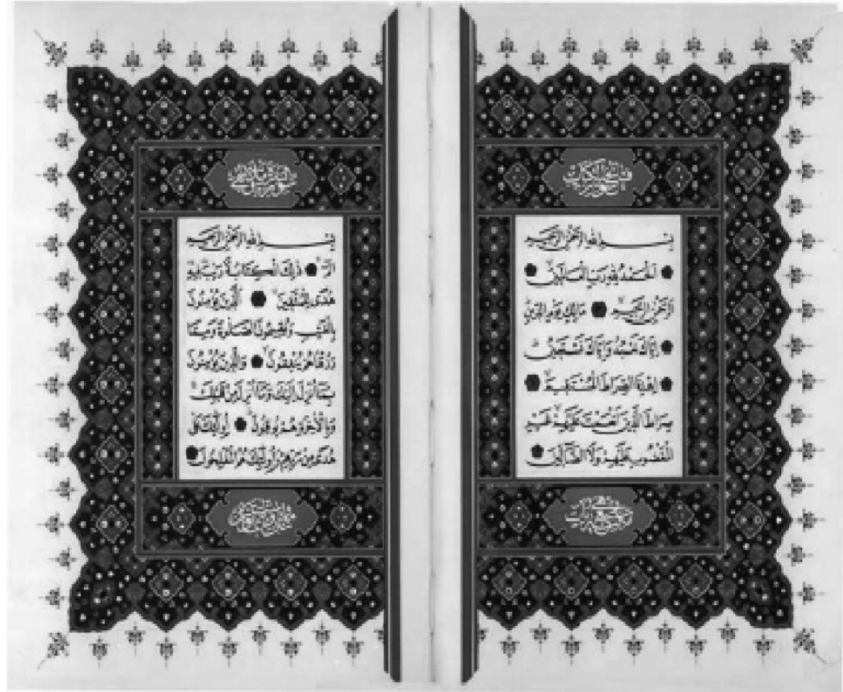 سورة فاتحة الكتاب
بسم الله الرحمن الرحيم
الحمد لله رب العالمين
الرحمن الرحيم مالك يوم الدين
اياك نعبد واياك نستعين
اهدنا الصراط المستقيم
صراط الذين انعمت عليهم غير
المغضوب عليهم ولا الضالين
بسم الله الرحمن الرحيم
الم ذلك الكتاب لا ريب فيه
هدى للمتقين الذين يؤمنون
بالغيب ويقيمون الصلوة ومما
رزقناهم ينفقون والذين يؤمنون
بما انزل اليك وما انزل من قبلك
وبالاخرة هم يوقنون اولئك على
هدى من ربهم واولئك هم المفلحون